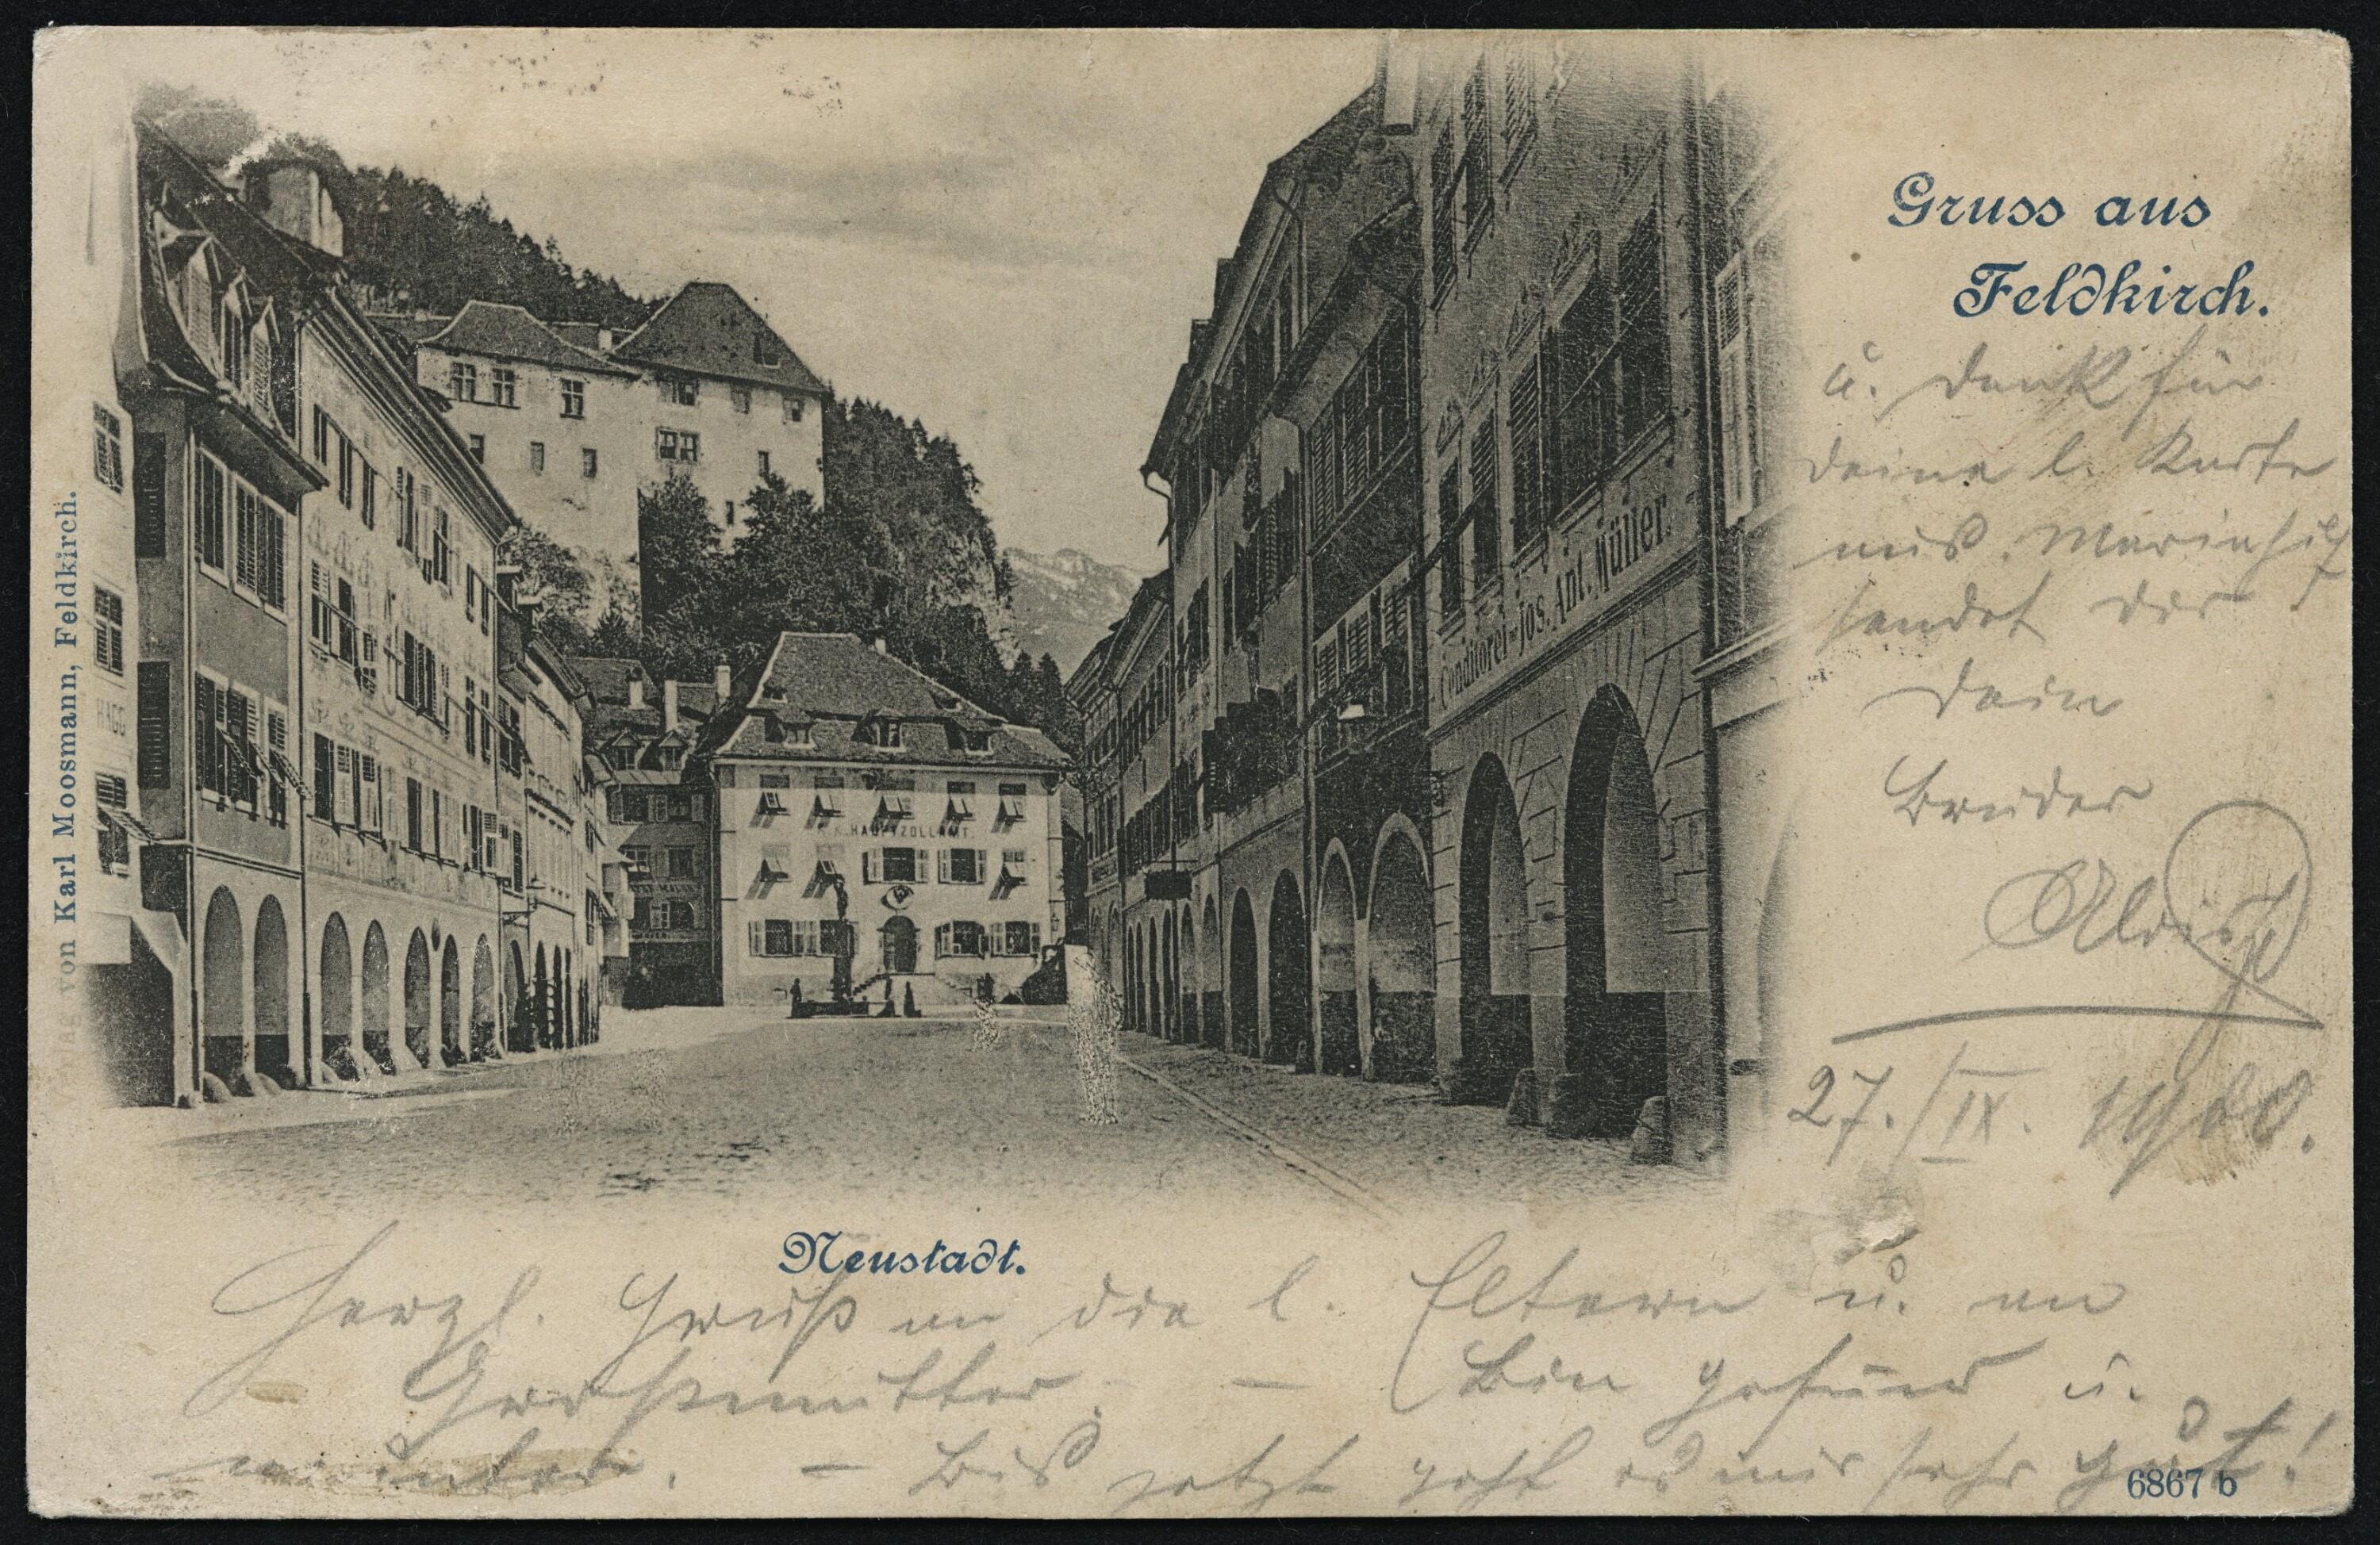 Gruss aus
Feldkirch.
u. Dank für
deine l. Karte
aus Mariahilf
sendet dir
Dein
Bruder
Alois
27./IX. 1900.
Verlag von Karl Moosmann, Feldkirch.
HAGG
K. HAUPTZOLLAMT.
Conditorei-Jos. Ant. Müller.
Neustadt.
Herzl. Gruß an die l. Eltern u. an
Großmutter. – Bin gesund u.
munter. – Bis jetzt geht es mir sehr gut!
6867 b